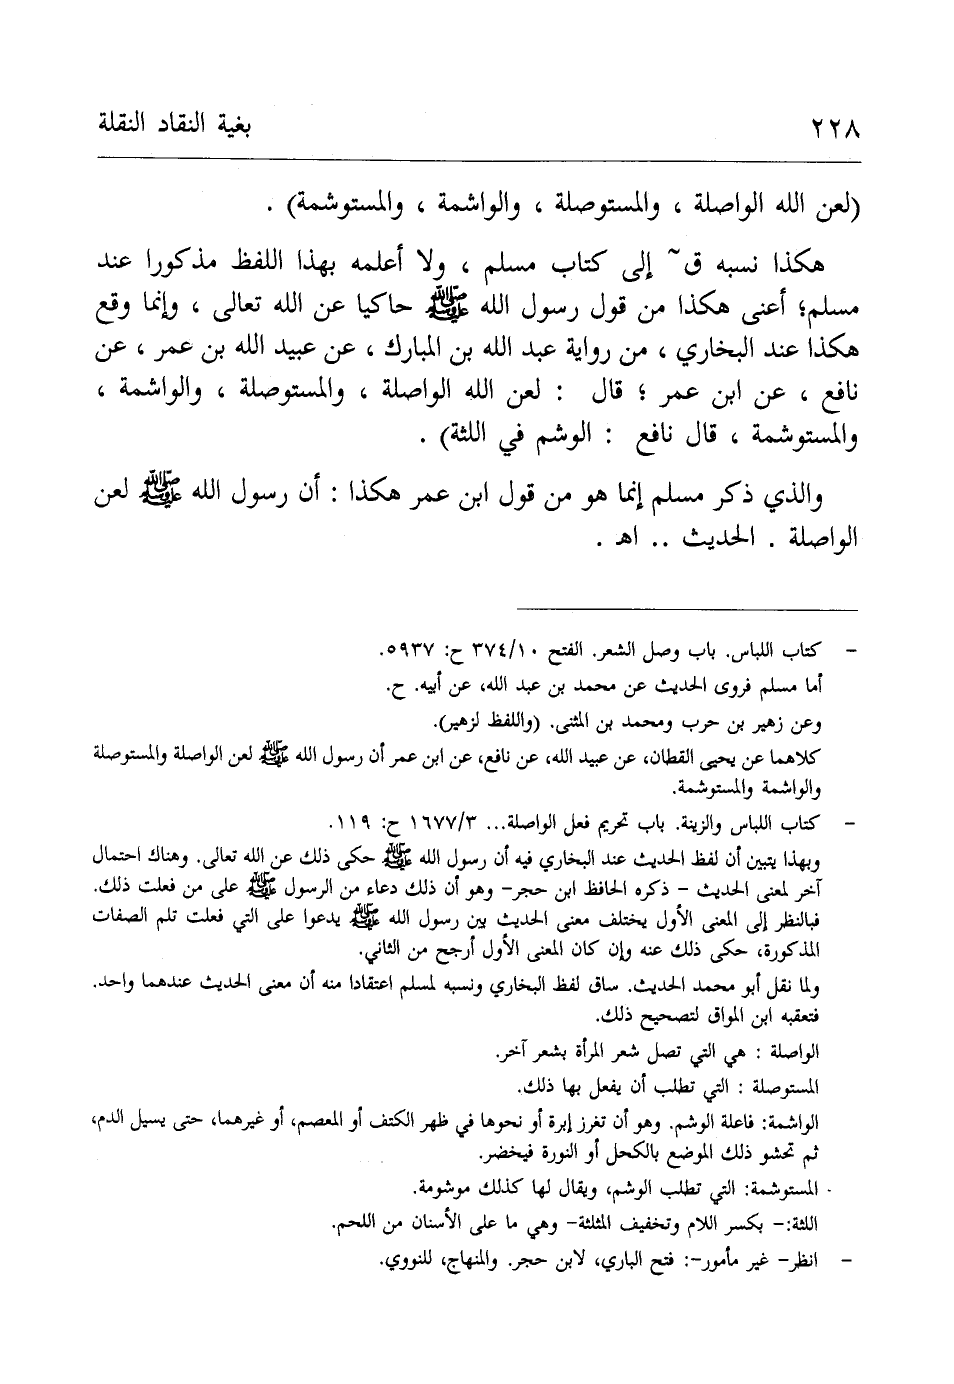 ٢٢٨ بغية النقاد النقلة
(لعن الله الواصلة ، والمستوصلة ، والواشمة ، والمستوشمة) .
هكذا نسبه ق~ إلى كتاب مسلم ، ولا أعلمه بهذا اللفظ مذكورا عند
مسلم؛ أعنى هكذا من قول رسول الله ﷺ حاكيا عن الله تعالى ، وإنما وقع
هكذا عند البخاري ، من رواية عبد الله بن المبارك ، عن عبيد الله بن عمر ، عن
نافع ، عن ابن عمر ؛ قال : لعن الله الواصلة ، والمستوصلة ، والواشمة ،
والمستوشمة ، قال نافع : الوشم في اللثة) .
والذي ذكر مسلم إنما هو من قول ابن عمر هكذا : أن رسول الله ﷺ لعن
الواصلة . الحديث .. اهـ .
- كتاب اللباس. باب وصل الشعر. الفتح ٣٧٤/١٠ ح: ٥٩٣٧.
أما مسلم فروى الحديث عن محمد بن عبد الله، عن أبيه. ح.
وعن زهير بن حرب ومحمد بن المثنى. (واللفظ لزهير).
كلاهما عن يحيى القطان، عن عبيد الله، عن نافع، عن ابن عمر أن رسول الله ﷺ لعن الواصلة والمستوصلة
والواشمة والمستوشمة.
- كتاب اللباس والزينة. باب تحريم فعل الواصلة... ١٦٧٧/٣ ح: ١١٩.
وبهذا يتبين أن لفظ الحديث عند البخاري فيه أن رسول الله ﷺ حكى ذلك عن الله تعالى. وهناك احتمال
آخر لمعنى الحديث - ذكره الحافظ ابن حجر- وهو أن ذلك دعاء من الرسول ﷺ على من فعلت ذلك.
فبالنظر إلى المعنى الأول يختلف معنى الحديث بين رسول الله ﷺ يدعوا على التي فعلت تلم الصفات
المذكورة، حكى ذلك عنه وإن كان المعنى الأول أرجح من الثاني.
ولما نقل أبو محمد الحديث. ساق لفظ البخاري ونسبه لمسلم اعتقادا منه أن معنى الحديث عندهما واحد.
فتعقبه ابن المواق لتصحيح ذلك.
الواصلة : هي التي تصل شعر المرأة بشعر آخر.
المستوصلة : التي تطلب أن يفعل بها ذلك.
الواشمة: فاعلة الوشم. وهو أن تغرز إبرة أو نحوها في ظهر الكتف أو المعصم، أو غيرهما، حتى يسيل الدم،
ثم تحشو ذلك الموضع بالكحل أو النورة فيخضر.
المستوشمة: التي تطلب الوشم، ويقال لها كذلك موشومة.
اللثة:- بكسر اللام وتخفيف المثلثة- وهي ما على الأسنان من اللحم.
- انظر- غير مأمور-: فتح الباري، لابن حجر. والمنهاج، للنووي.